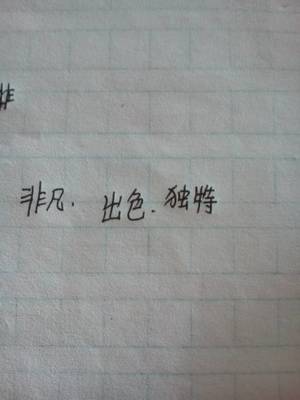 非凡. 出色. 独特